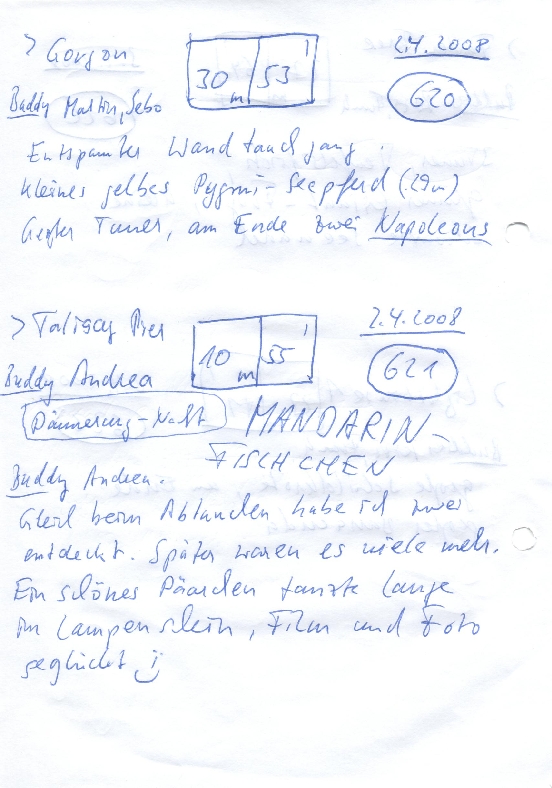 > Gorgon 30 m 53 ' 2.4.2008
Buddy Martin, Sebo 620
Entspannter Wandtauchgang.
Kleines gelbes Pygmi-Seepferd (29m)
Großer Tuner, am Ende zwei Napoleons
> Talisay Pier 10 m 55 ' 2.4.2008
Buddy Andrea 621
Dämmerung-Nacht MANDARIN-
FISCHCHEN
Buddy Andrea.
Gleich beim Abtauchen habe ich zwei
entdeckt. Später waren es viele mehr.
Ein schönes Päarchen tanzte lange
im Lampenschein, Film und Foto
geglückt :)